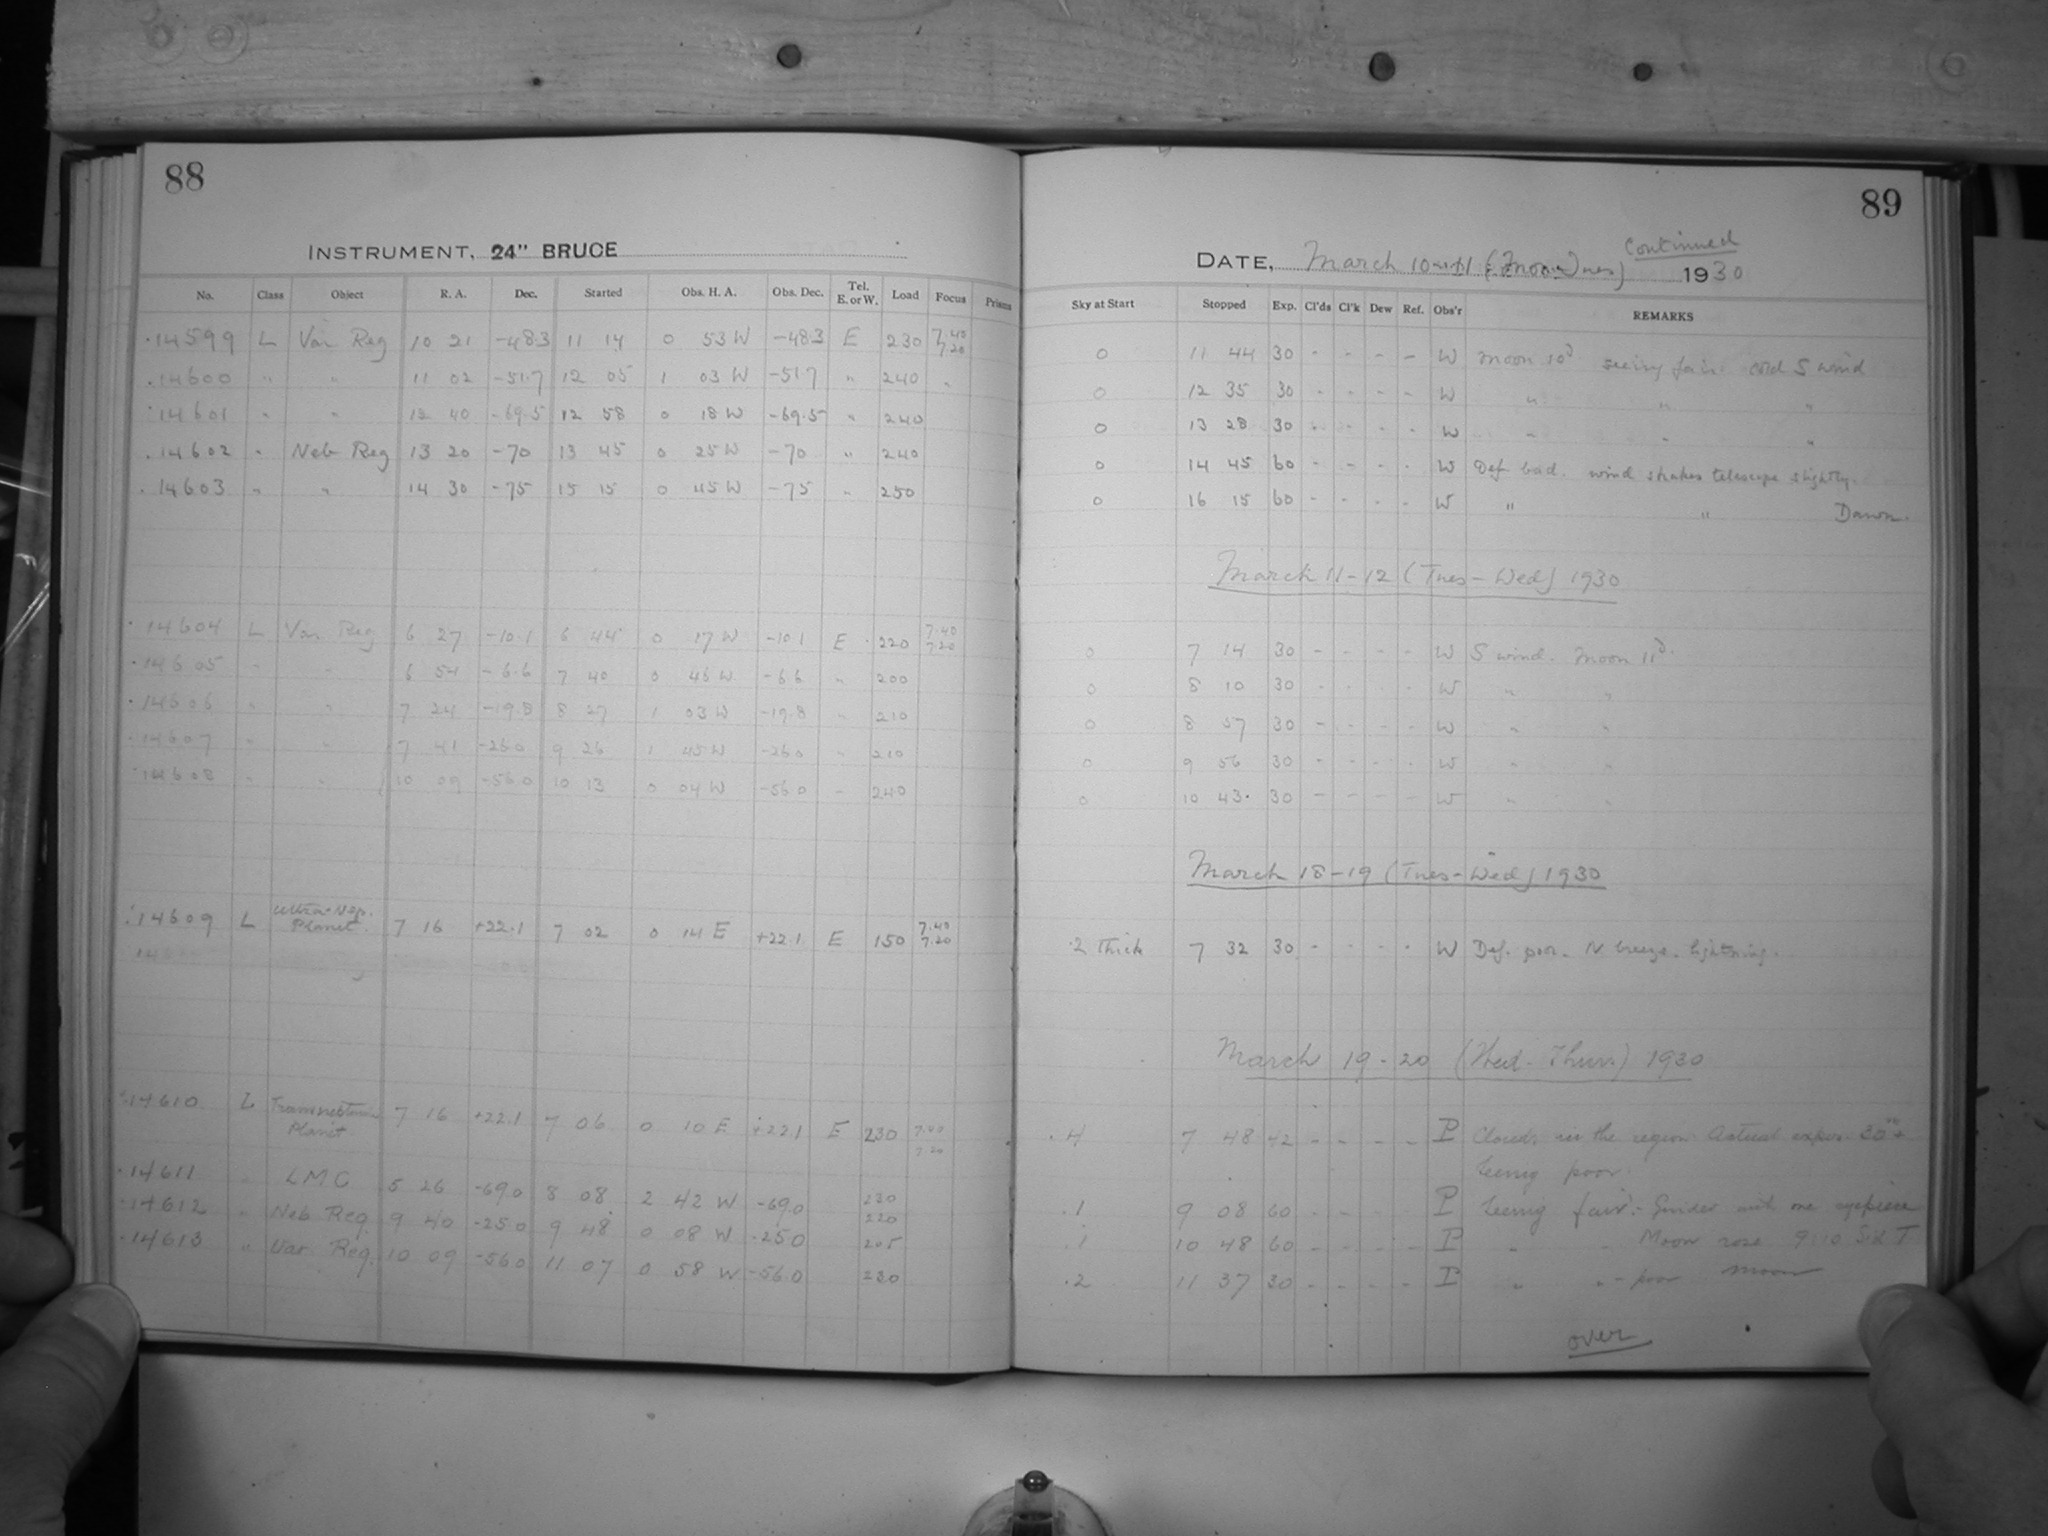 88
INSTRUMENT, 24" BRUCE
No. Class Object R. A. Dec. Started Obs. H. A. Obs. Dec. Tel. E. or W. Load Focus Prisms
14599 L Var Reg 10 21 -48.3 11 14 0 53 W -48.3 E 230 7.40 7.20
14600 " " 11 02 -51.7 12 05 1 03 W -51.7 " 240 "
14601 " " 12 40 -69.5 12 58 0 18 W -69.5 " 240
14602 " Neb Reg 13 20 -70 13 45 0 25 W -70 " 240
14603 " " 14 30 -75 15 15 0 45 W -75 " 250
14604 L Var Reg 6 27 -10.1 6 44 0 17 W -10.1 E 220 7.40 7.20
14605 " " 6 54 -6.6 7 40 0 46 W -6.6 " 200
14606 " " 7 24 -19.8 8 27 1 03 W -19.8 " 210
14607 " " 7 41 -26.0 9 26 1 45 W -26.0 " 210
14608 " " 10 09 -56.0 10 13 0 04 W -56.0 " 240
14609 L Ultra-Nep. Planet. 7 16 +22.1 7 02 0 14 E +22.1 E 150 7.40 7.20
14610 L Transneptunian Planet 7 16 +22.1 7 06 0 10 E +22.1 E 230 7.40 7.20
14611 " LMC 5 26 -69.0 8 08 2 42 W -69.0 230
220
14612 " Neb Reg. 9 40 -25.0 9 48 0 08 W -25.0 205
14613 " Var Reg. 10 09 -56.0 11 07 0 58 W -56.0 230
89
Continued
DATE, March 10-11 1930
Sky at Start Stopped Exp. Cl'ds Cl'k Dew Ref. Obs'r REMARKS
0 11 44 30 - - - - W Moon 10d seeing fair. cold S wind
0 12 35 30 - - - - W " " "
0 13 28 30 - - - - W " " "
0 14 45 60 - - - - W Def. bad. wind shakes telescope slightly.
0 16 15 60 - - - - W " " Dawn.
March 11-12 (Tues-Wed) 1930
0 7 14 30 - - - - W S wind. Moon 11d.
0 8 10 30 - - - - W " "
0 8 57 30 - - - - W " "
0 9 56 30 - - - - W " "
0 10 43 30 - - - - W " "
March 18-19 (Tues-Wed) 1930
.2 Thick 7 32 30 - - - - W Def. poor. N breeze. lightning.
March 19-20 (Wed-Thurs) 1930
.4 7 48 42 - - - - P Clouds in the region. Actual expos. 30m+
Seeing poor.
.1 9 08 60 - - - - P Seeing fair. - Guider with one eyepiece
.1 10 48 60 - - - - P " " Moon rose 9:10 Sid T
.2 11 37 30 - - - - P " " - poor Moon
over